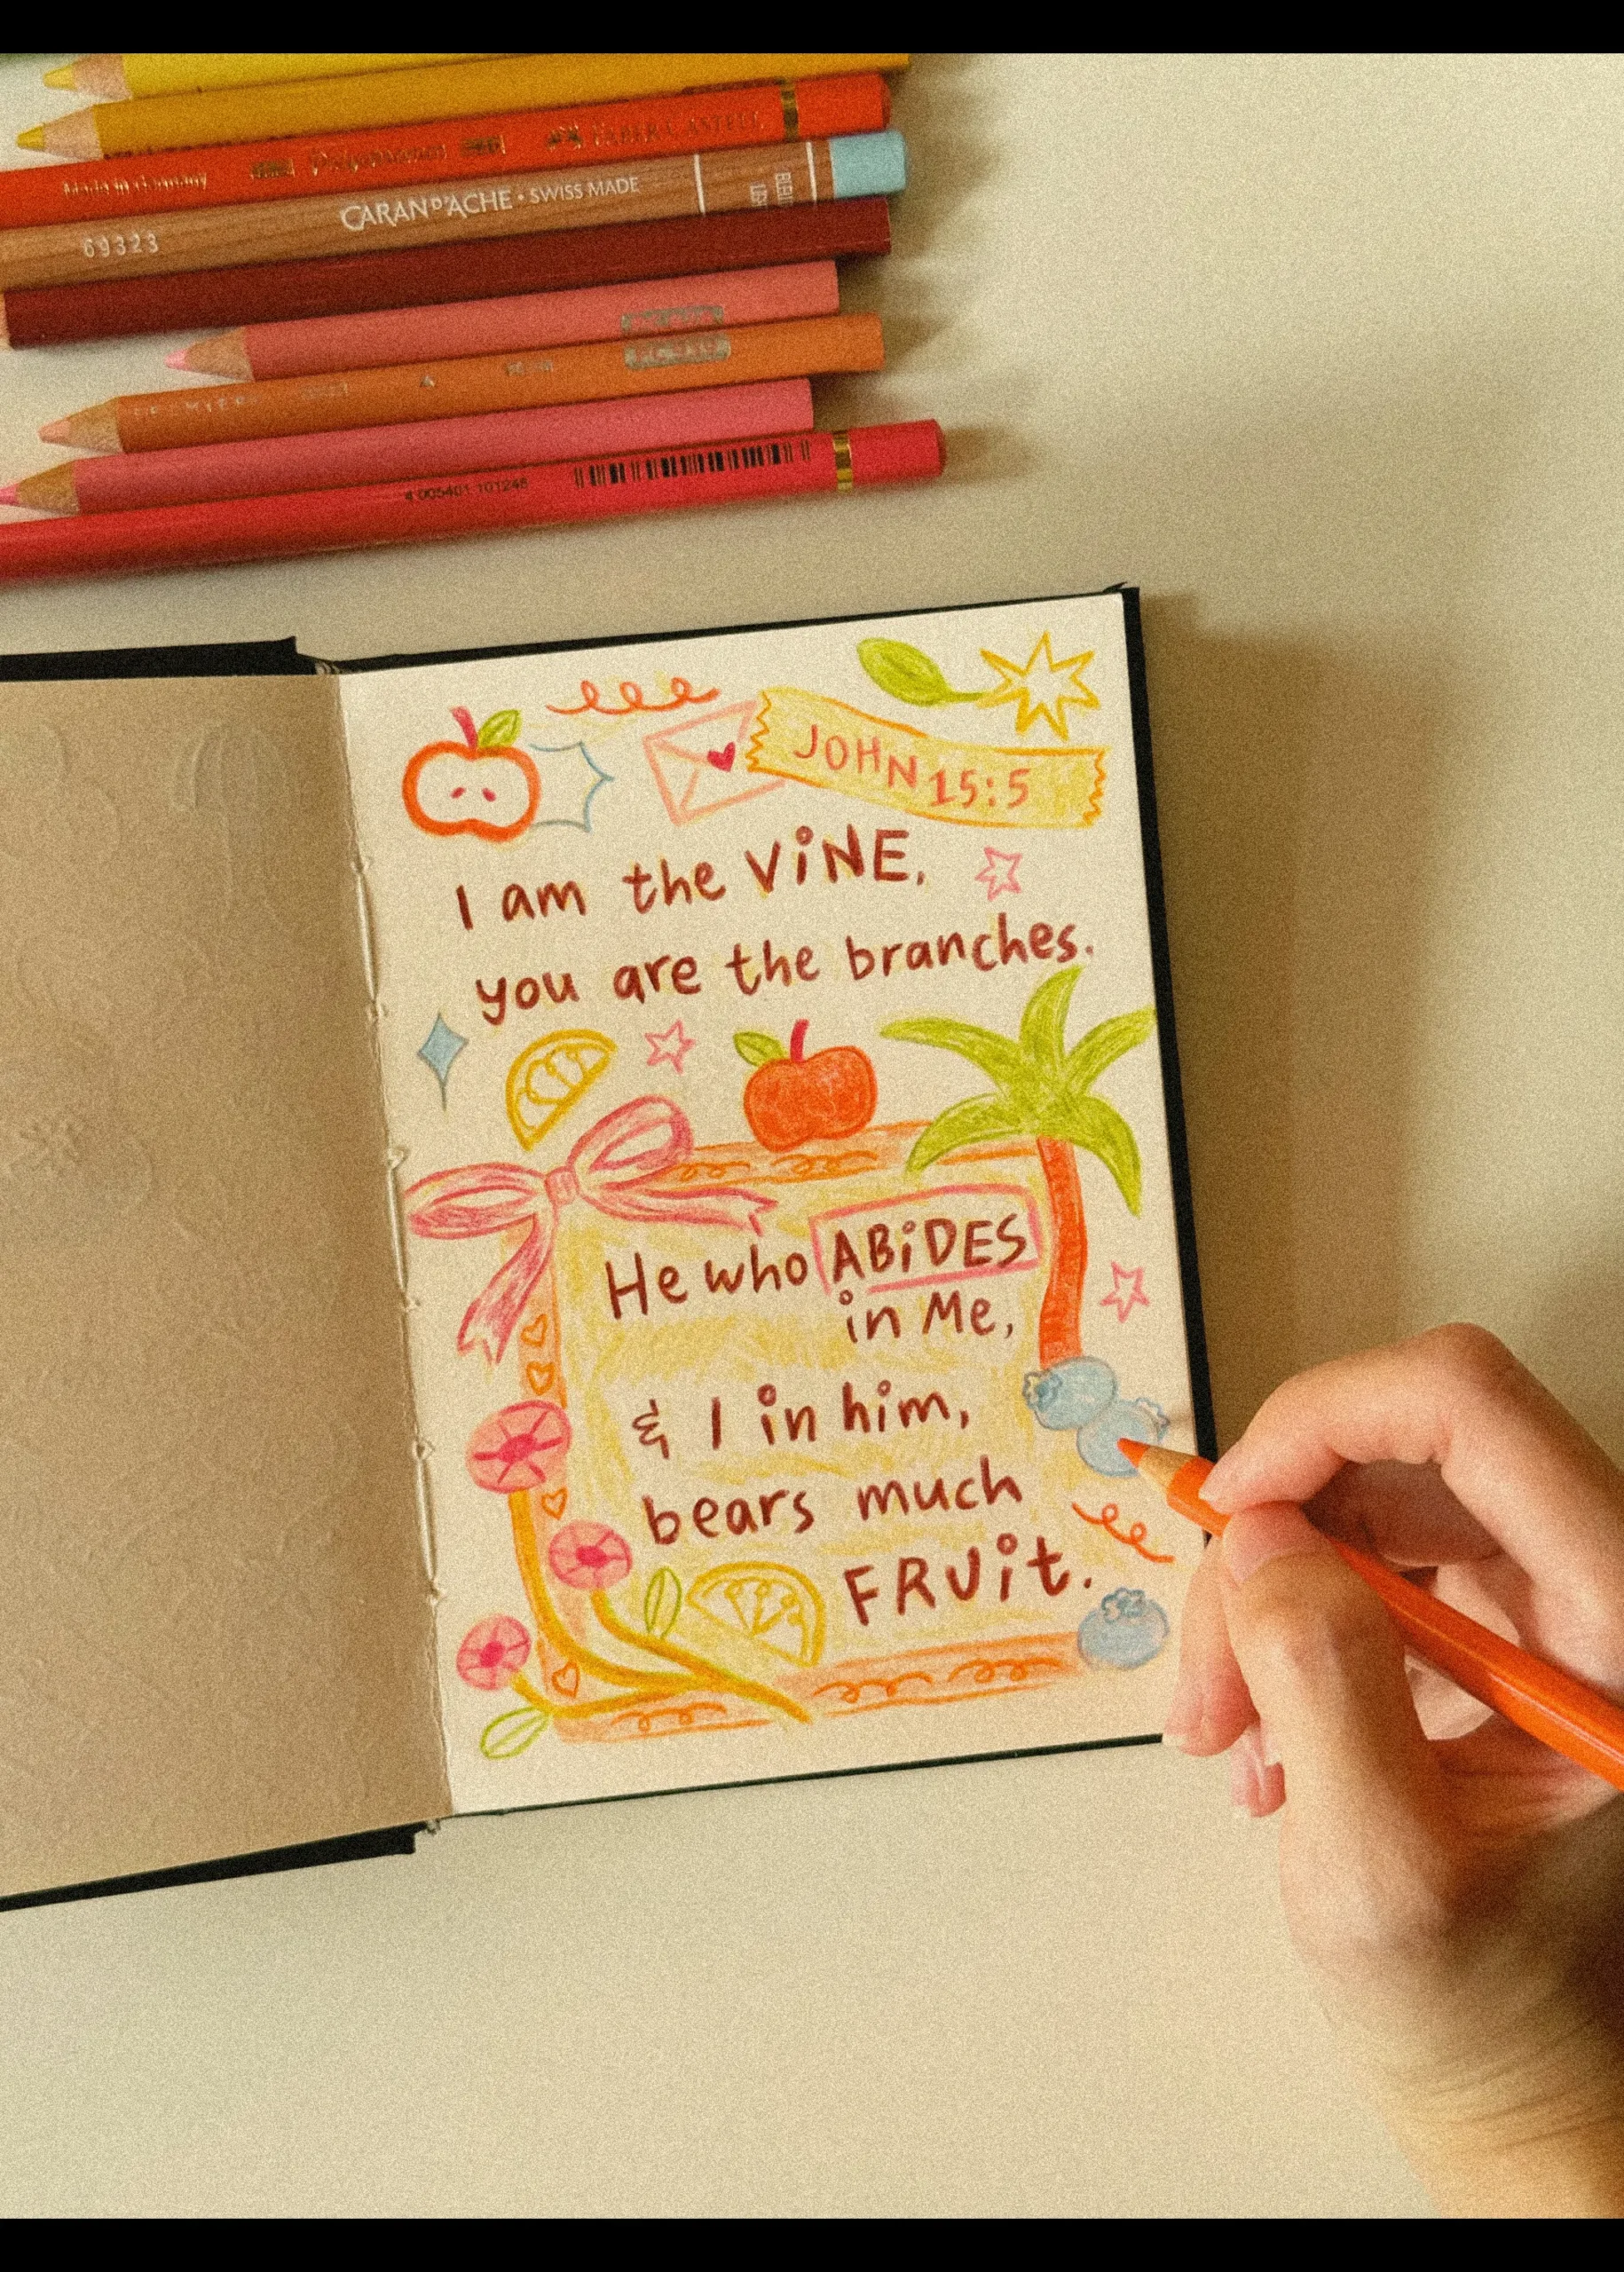 Made in Germany Polychromos FABER-CASTELL
CARAN D'ACHE • SWISS MADE
69323
PREMIER
4 005401 101246
JOHN 15:5
I am the ViNE,
you are the branches.
He who ABiDES
in Me,
& I in him,
bears much
FRUiT.